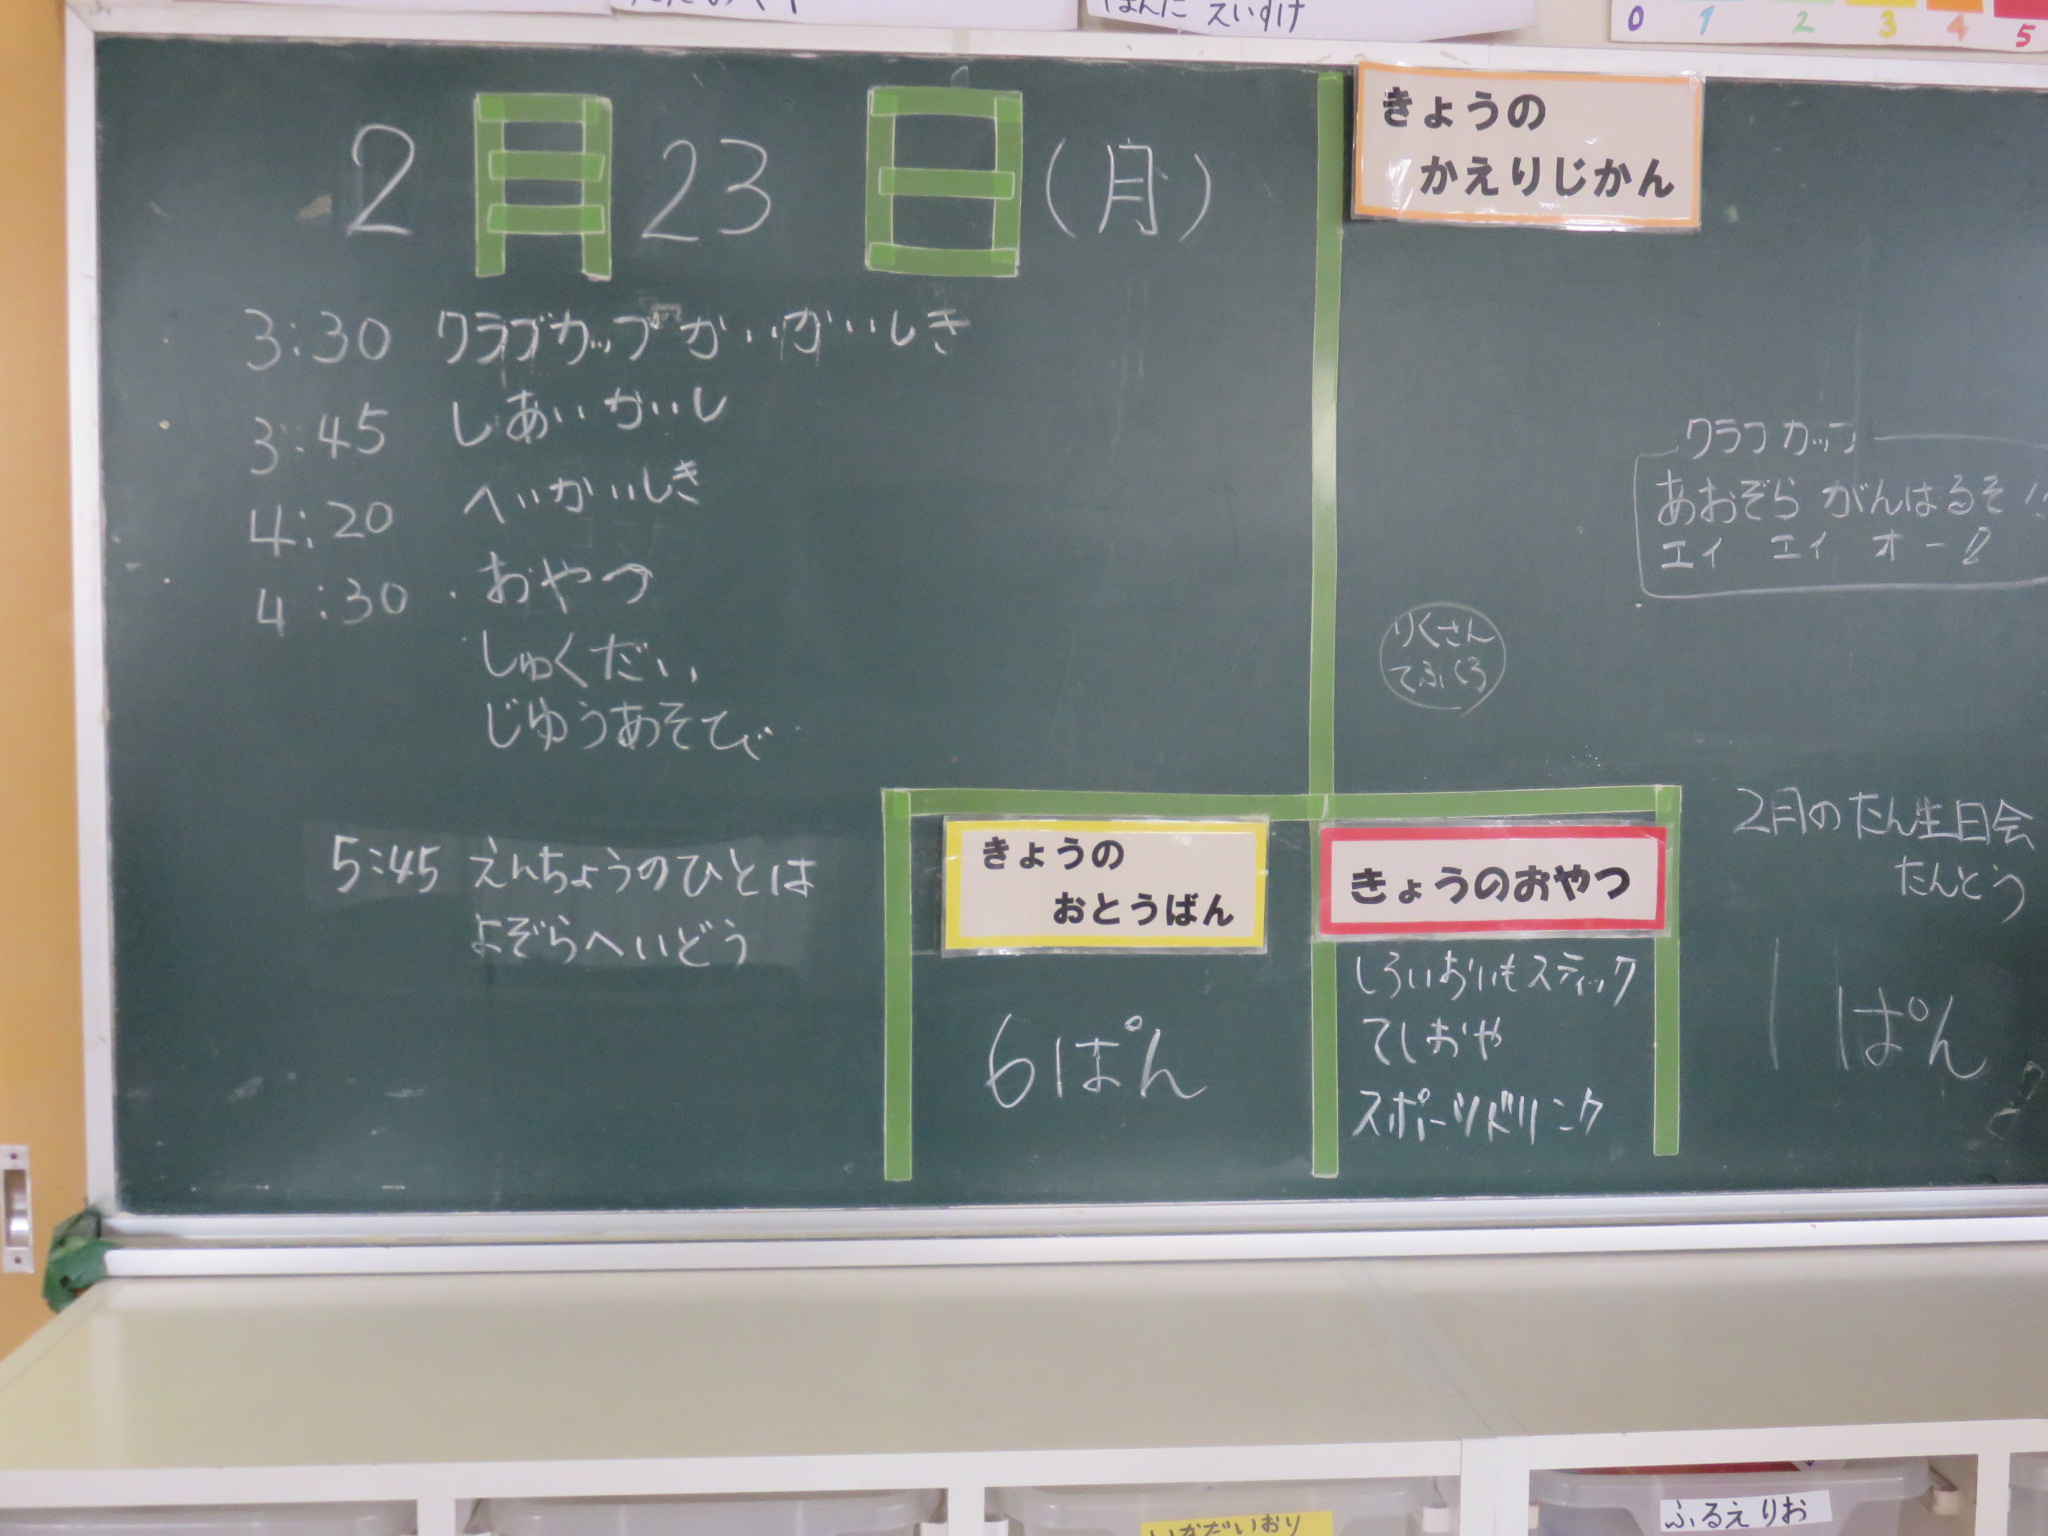 えいすけ
0 1 2 3 4 5
2月23日(月)
3:30 クラブカップかいかいしき
3:45 しあいかいし
4:20 へいかいしき
4:30・おやつ
しゅくだい
じゆうあそび
5:45 えんちょうのひとは
よぞらへいどう
きょうの
おとうばん
6ぱん
きょうの
かえりじかん
クラブカップ
あおぞら がんばるぞ!!
エイ エイ オー!
りくさん
てぶくろ
きょうのおやつ
しろいおいもスティック
てしおや
スポーツドリンク
2月のたん生日会
たんとう
1ぱん
ふるえりお